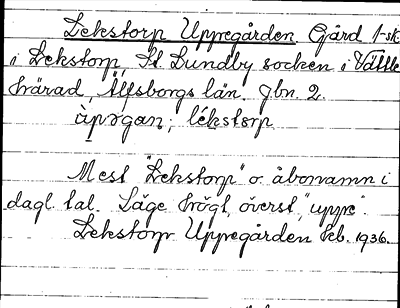 Lekstorp Uppegården Gård 1-sk.
i Lekstorp, St. Lundby socken i Vättle
härad, Älfsborgs län. Jbn. 2.
àpɘgan; lékstɘrp
Mest "Lekstorp" o. åbonamn i
dagl. tal. Läge högt, överst, "uppe".
Lekstorp Uppegården feb. 1936.